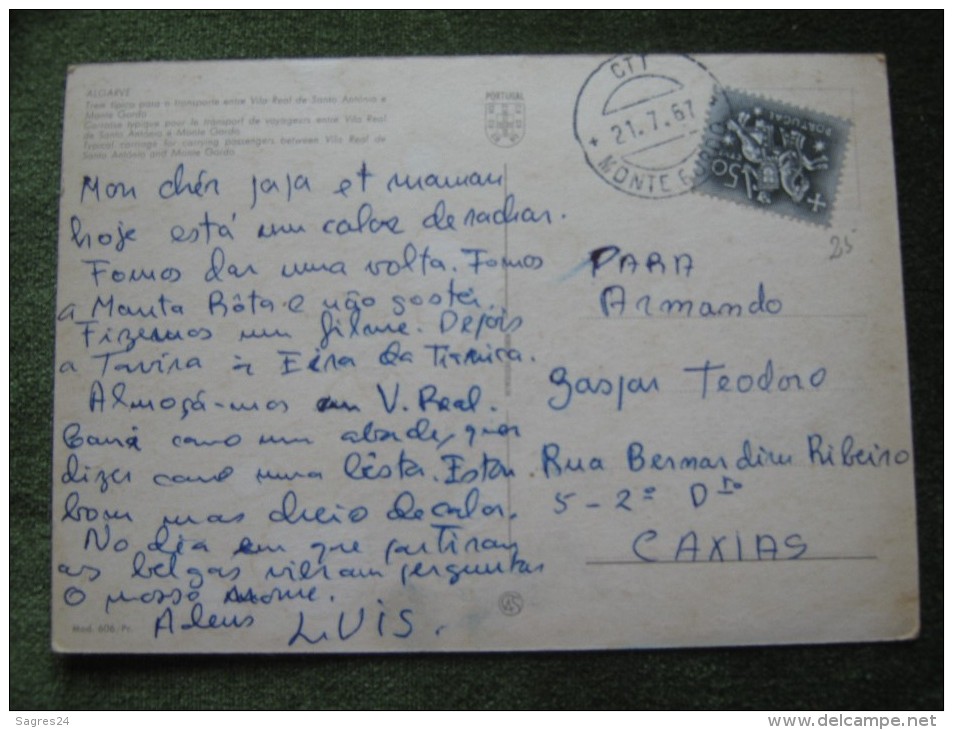 ALGARVE
Trem típico para o transporte entre Vila Real de Santo António e
Monte Gordo
Carrosse typique pour le transport de voyageurs entre Vila Real
de Santo António e Monte Gordo
Typical carriage for carrying passengers between Vila Real de
Santo António and Monte Gordo
PORTUGAL
CTT
21.7.67
MONTE GORDO
PORTUGAL
1$50
25
Mon chér papa et maman
hoje está um calor de rachar.
Fomos dar uma volta. Fomos
a Manta Rôta e não gostei.
Fizemos um filme. Depois
a Tavira à Eira da
Almoçá-mos em V. Real.
como um abade, quer
dizer como uma bêsta. Estou
bom mas cheio de calor.
No dia em que partiram
os belgas vieram perguntar
o nosso nome.
Adeus LUIS.
PARA
Armando
Gaspar Teodoro
Rua Bernardim Ribeiro
5-2º Dto
CAXIAS
Mod. 606/Pc
Sagres24
www.delcampe.net